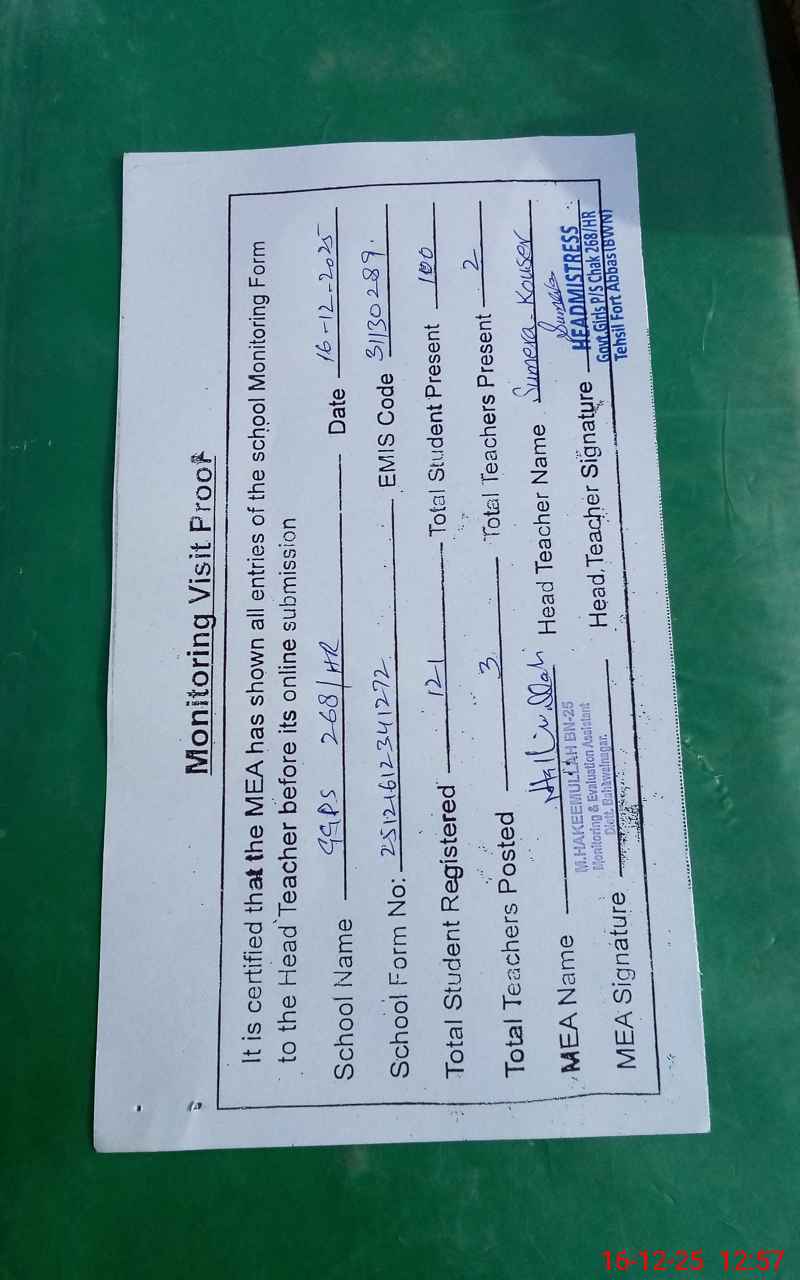 Monitoring Visit Proof
It is certified that the MEA has shown all entries of the school Monitoring Form
to the Head Teacher before its online submission
School Name GGPS 268/HR Date 16-12-2025
School Form No: 25121612341272 EMIS Code 31130289.
Total Student Registered 121 Total Student Present 100
Total Teachers Posted 3 Total Teachers Present 2
MEA Name Head Teacher Name Sumera Kouser
M.HAKEEMULLAH BN-25
Monitoring & Evaluation Assistant
Distt. Bahawalnagar.
MEA Signature Head Teacher Signature Sumera
HEADMISTRESS
Govt.Girls P/S Chak 268/HR
Tehsil Fort Abbas (BWN)
16-12-25 12:57